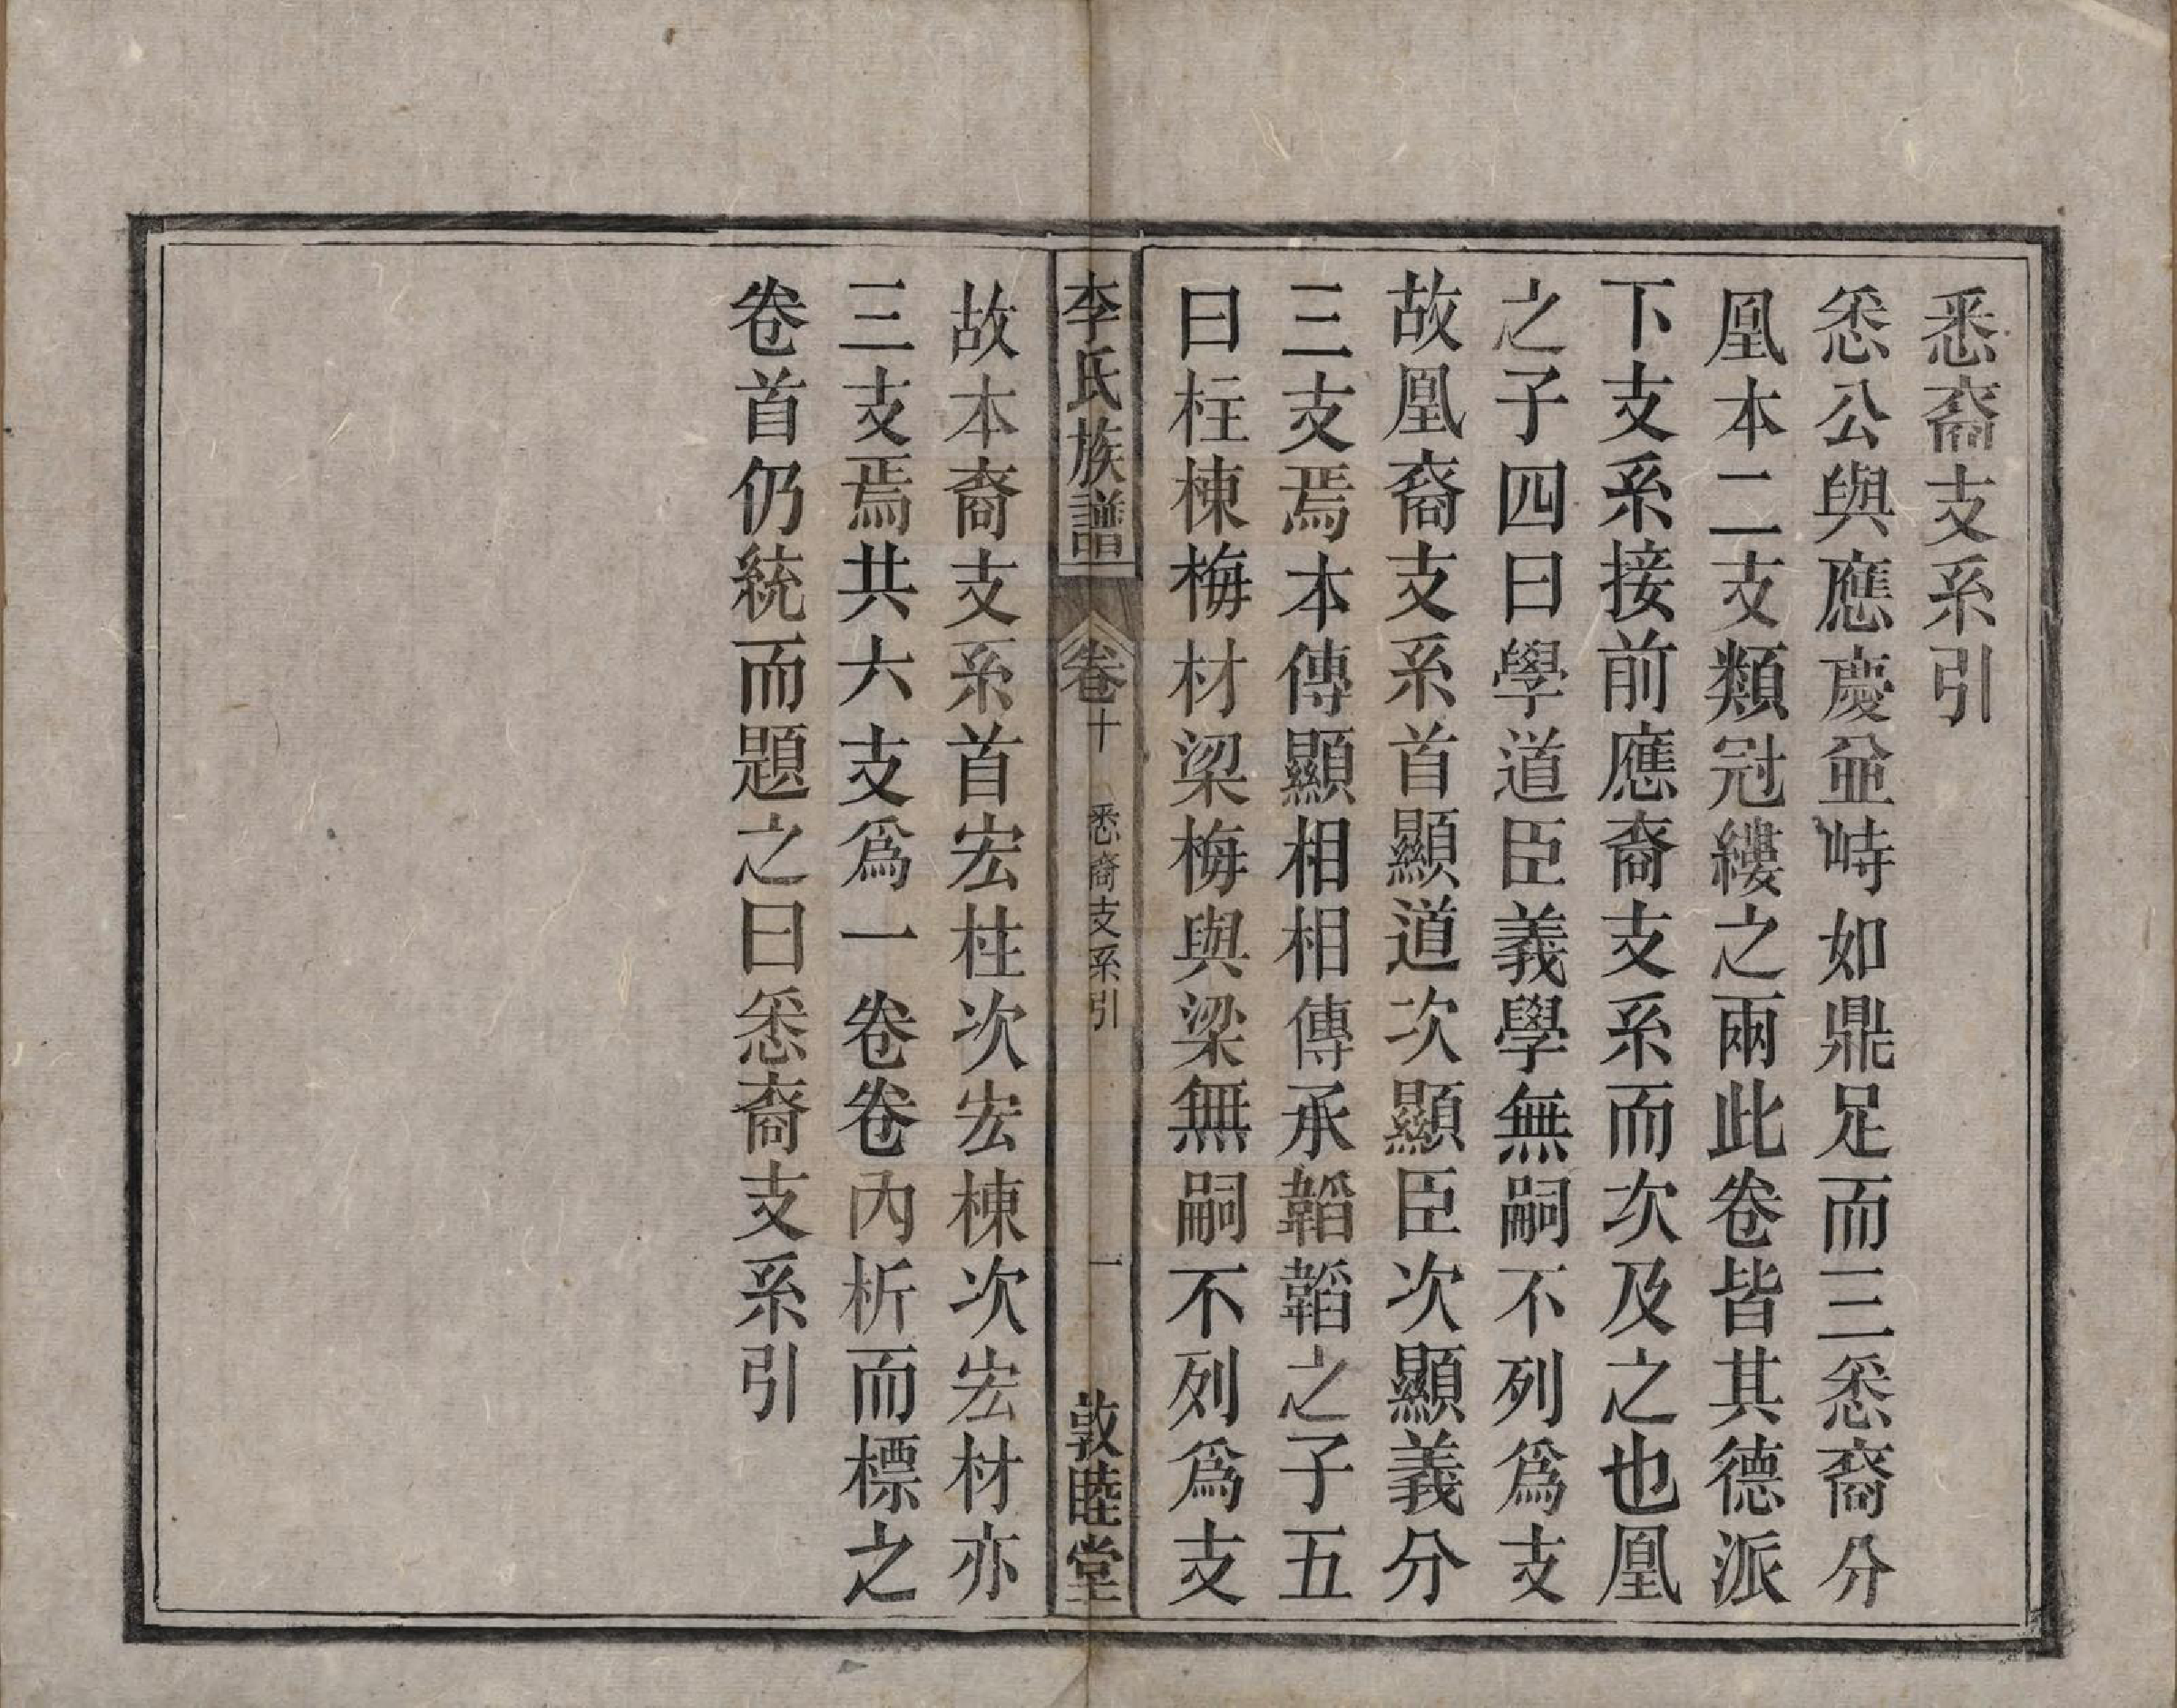 悉裔支系引
悉公與應慶並峙如鼎足而三悉裔分
凰本二支類冠縷之兩此卷皆其德派
下支系接前應裔支系而次及之也凰
之子四曰學道臣義學無嗣不列爲支
故凰裔支系首顯道次顯臣次顯義分
三支焉本傳顯相相傳承韜韜之子五
曰柱棟梅材梁梅與梁無嗣不列爲支
李氏族譜 卷十 悉裔支系引 一 敦睦堂
故本裔支系首宏柱次宏棟次宏材亦
三支焉共六支爲一卷卷內析而標之
卷首仍統而題之曰悉裔支系引